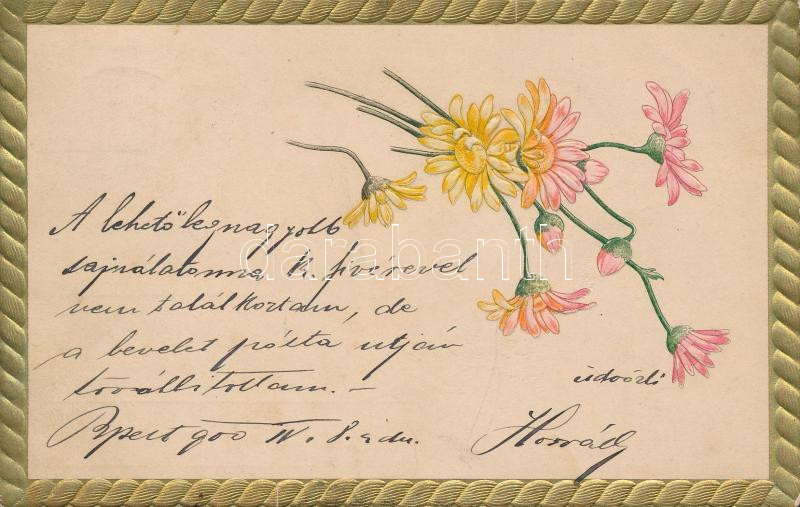 A lehető legnagyobb
sajnálatomra K. fivérével
nem találkoztam, de
a levelet pósta útján
továbbítottam. –
Bpest 900 IV. 8. du.
üdvözli
Horváth
darabanth